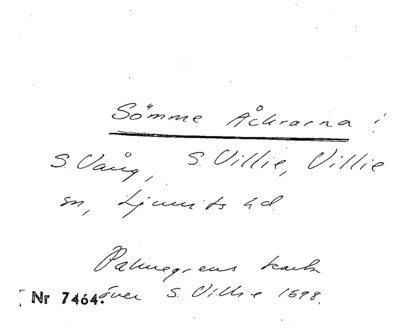 Sömme Åkrarna i
S. Vång, S. Villie, Villie
sn, Ljunits hd.
Palmegrens karta
Nr 7464. över S. Villie 1698.